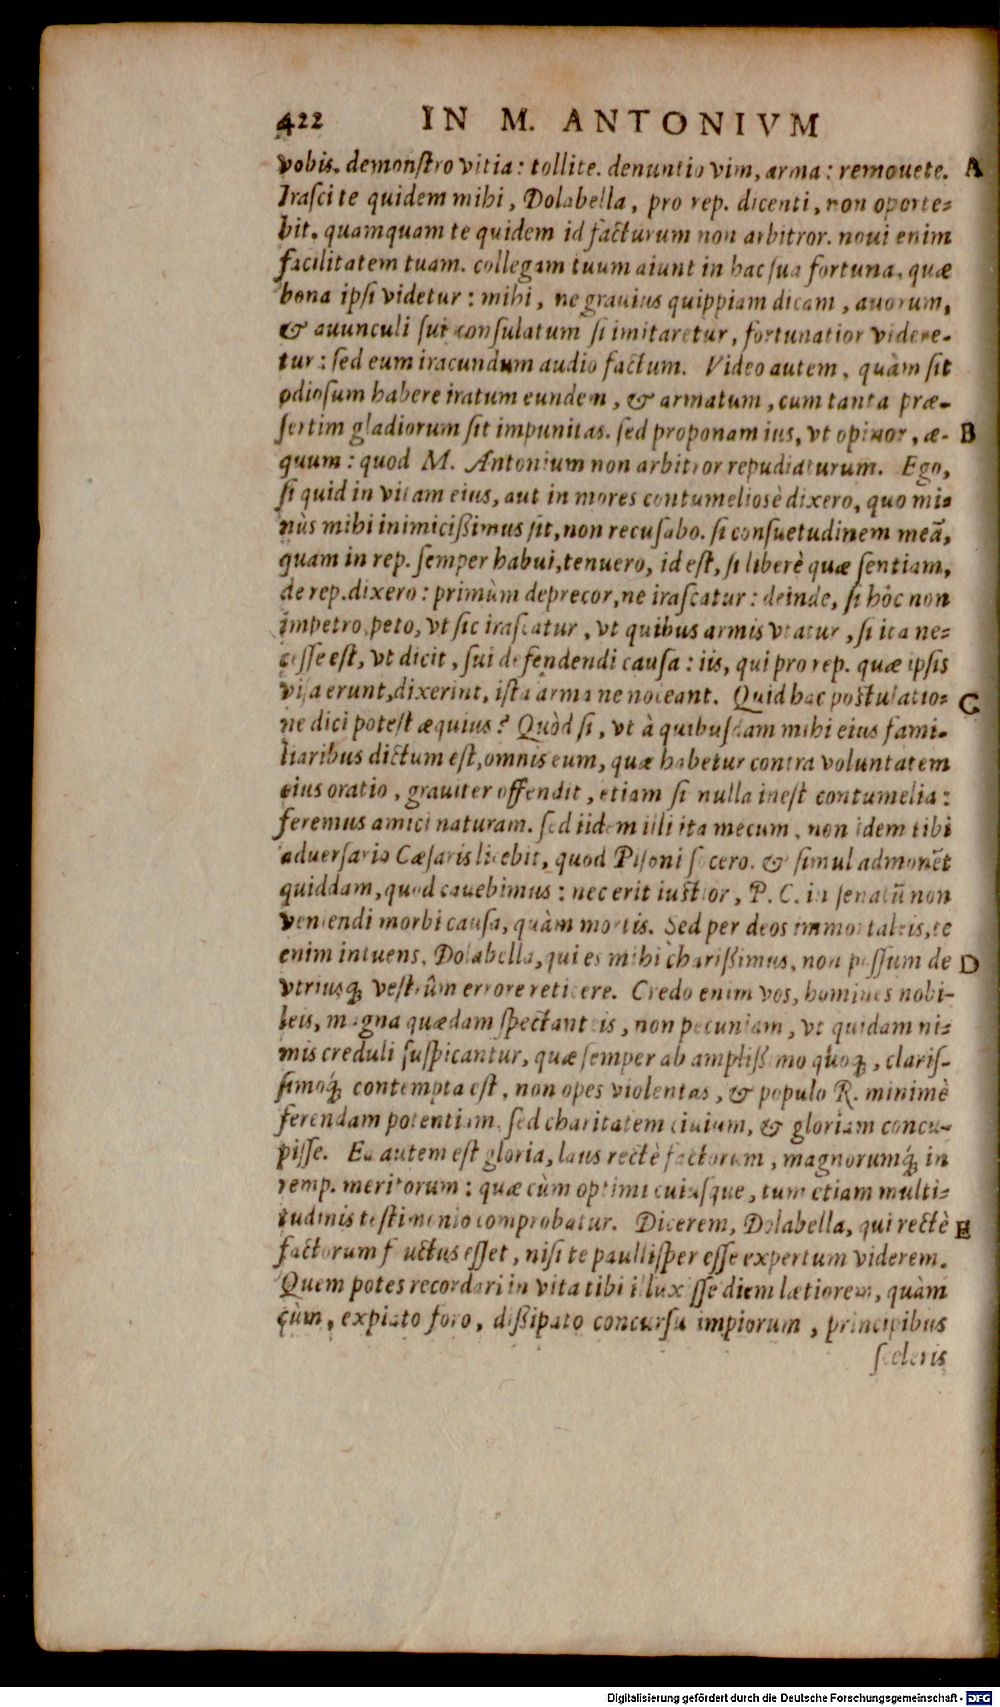 422 IN M. ANTONIVM
vobis. demonſtro vitia: tollite. denuntio vim, arma: remouete. A
Iraſci te quidem mihi, Dolabella, pro rep. dicenti, non oporte-
bit. quamquam te quidem id facturum non arbitror. noui enim
facilitatem tuam. collegam tuum aiunt in hac ſua fortuna, quæ
bona ipſi videtur: mihi, ne grauius quippiam dicam, auorum,
& auunculi ſui conſulatum ſi imitaretur, fortunatior videre-
tur: ſed eum iracundum audio factum. Video autem, quàm ſit
odioſum habere iratum eundem, & armatum, cum tanta præ-
ſertim gladiorum ſit impunitas. ſed proponam ius, vt opinor, æ- B
quum: quod M. Antonium non arbitror repudiaturum. Ego,
ſi quid in vitam eius, aut in mores contumelioſè dixero, quo mi-
nùs mihi inimiciſſimus ſit, non recuſabo. ſi conſuetudinem meã,
quam in rep. ſemper habui, tenuero, id eſt, ſi liberè quæ ſentiam,
de rep. dixero: primùm deprecor, ne iraſcatur: deinde, ſi hoc non
impetro, peto, vt ſic iraſcatur, vt quibus armis vtatur, ſi ita ne-
ceſſe eſt, vt dicit, ſui defendendi cauſa: iis, qui pro rep. quæ ipſis
viſa erunt, dixerint, iſta arma ne noceant. Quid hac poſtulatio- C
ne dici poteſt æquius? Quòd ſi, vt à quibuſdam mihi eius fami-
liaribus dictum eſt, omnis eum, quæ habetur contra voluntatem
eius oratio, grauiter offendit, etiam ſi nulla ineſt contumelia:
feremus amici naturam. ſed iidem illi ita mecum, non idem tibi
aduerſario Cæſaris licebit, quod Piſoni ſocero. & ſimul admonẽt
quiddam, quod cauebimus: nec erit iuſtior, P. C. in ſenatũ non
veniendi morbi cauſa, quàm mortis. Sed per deos immortaleis, te
enim intuens, Dolabella, qui es mihi chariſſimus, non poſſum de D
vtriuſq́; veſtrûm errore reticere. Credo enim vos, homines nobi-
leis, magna quædam ſpectanteis, non pecuniam, vt quidam ni-
mis creduli ſuſpicantur, quæ ſemper ab ampliſſimo quoq́;, clariſ-
ſimoq́; contempta eſt, non opes violentas, & populo R. minimè
ferendam potentiam, ſed charitatem ciuium, & gloriam concu-
piſſe. Ea autem eſt gloria, laus rectè factorum, magnorumq́; in
remp. meritorum: quæ cùm optimi cuiuſque, tum etiam multi-
tudinis teſtimonio comprobatur. Dicerem, Dolabella, qui rectè E
factorum fructus eſſet, niſi te paulliſper eſſe expertum viderem.
Quem potes recordari in vita tibi illuxiſſe diem lætiorem, quàm
cùm, expiato foro, diſſipato concurſu impiorum, principibus
ſceleris
Digitalisierung gefördert durch die Deutsche Forschungsgemeinschaft - DFG